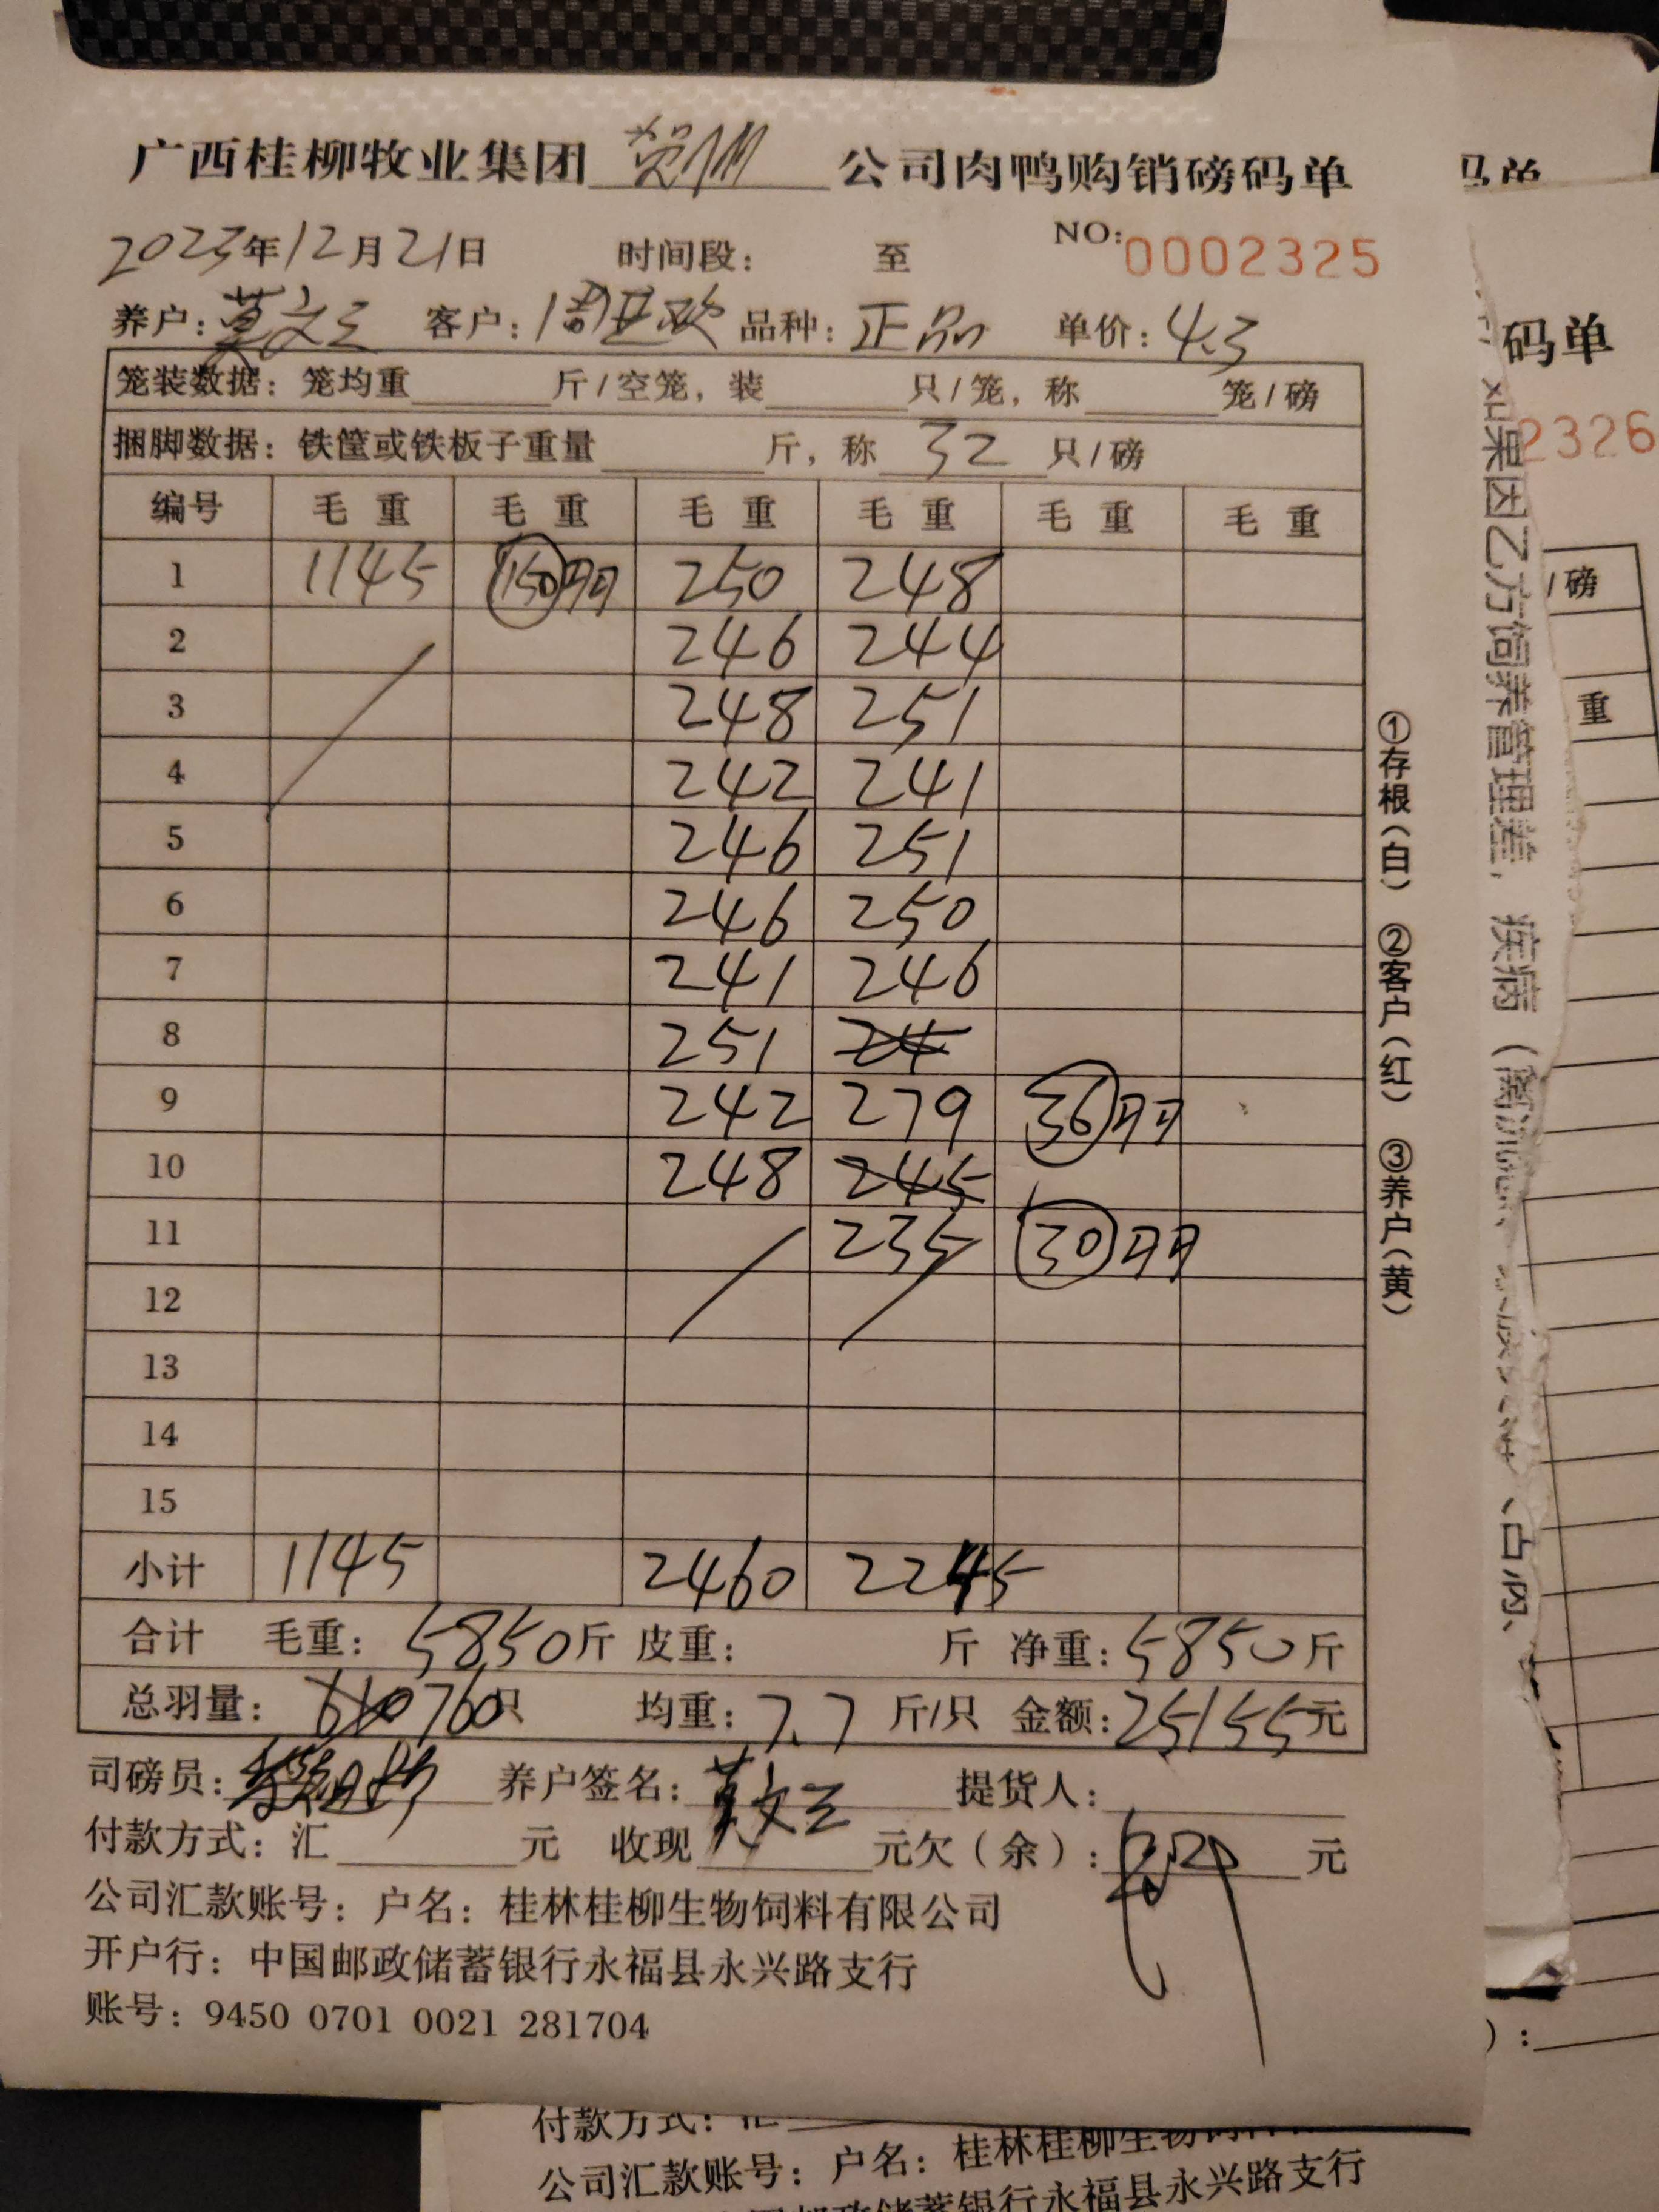 广西桂柳牧业集团 贺州 公司肉鸭购销磅码单
2023年12月21日 时间段： 至 NO:0002325
养户：莫文三 客户：周亚欧 品种：正品 单价：4.3
笼装数据：笼均重 斤/空笼，装 只/笼，称 笼/磅
捆脚数据：铁筐或铁板子重量 斤，称 32 只/磅
编号 毛重 毛重 毛重 毛重 毛重 毛重
1 1145 150 250 248
2 246 244
3 248 251
4 242 241
5 246 251
6 246 250
7 241 246
8 251 24
9 242 279 36
10 248 245
11 235 30
12
13
14
15
小计 1145 2460 2245
合计 毛重：5850斤 皮重： 斤 净重：5850斤
总羽量：610 760只 均重：7.7 斤/只 金额：25155元
司磅员： 养户签名：莫文三 提货人：
付款方式：汇 元 收现 元欠（余）： 元
公司汇款账号：户名：桂林桂柳生物饲料有限公司
开户行：中国邮政储蓄银行永福县永兴路支行
账号：9450 0701 0021 281704
①存根（白） ②客户（红） ③养户（黄）
码单
码单
2326
/磅
重
如果因乙方饲养管理差，疾病（
）：
付款方式：汇
公司汇款账号：户名：桂林桂柳生物
银行永福县永兴路支行